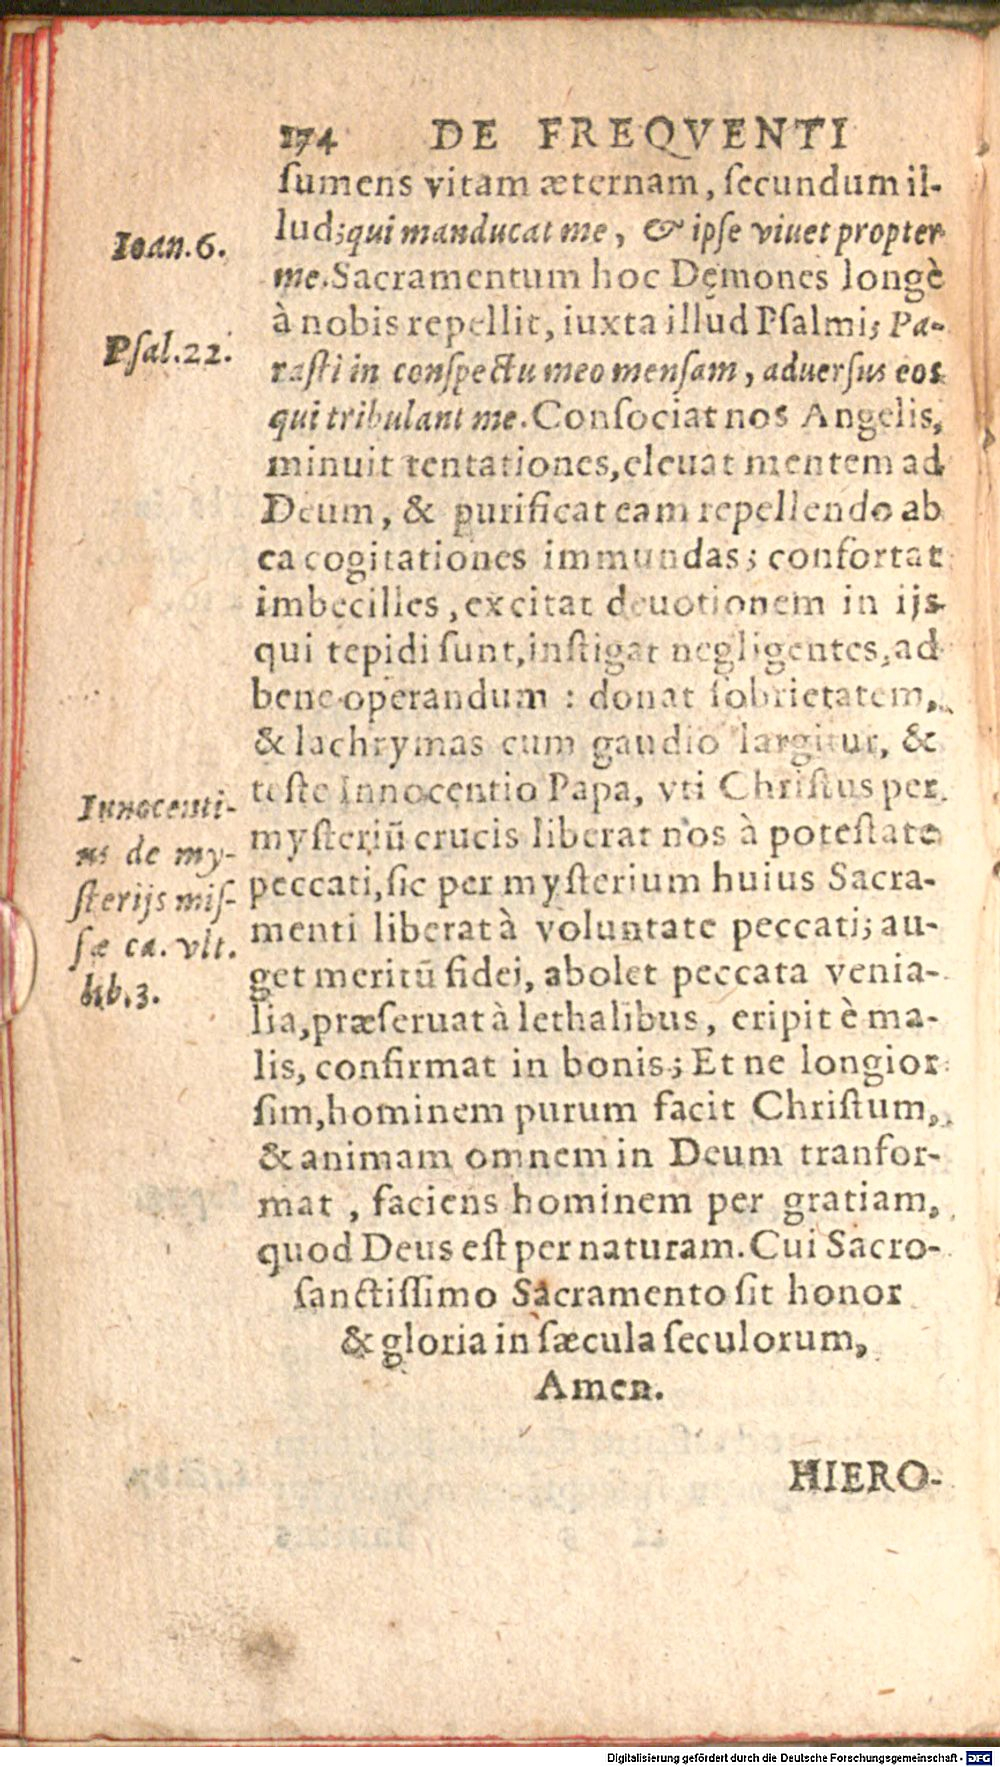 174 DE FREQVENTI
ſumens vitam æternam, ſecundum il-
lud; qui manducat me, & ipſe viuet propter
me. Sacramentum hoc Dęmones longè
à nobis repellit, iuxta illud Pſalmi; Pa-
raſti in conſpectu meo menſam, aduerſus eos
qui tribulant me. Conſociat nos Angelis,
minuit tentationes, eleuat mentem ad
Deum, & purificat eam repellendo ab
ea cogitationes immundas; confortat
imbecilles, excitat deuotionem in ijs
qui tepidi ſunt, inſtigat negligentes, ad
bene operandum: donat ſobrietatem,
& lachrymas cum gaudio largitur, &
teſte Innocentio Papa, vti Chriſtus per
myſteriũ crucis liberat nos à poteſtate
peccati, ſic per myſterium huius Sacra-
menti liberat à voluntate peccati; au-
get meritũ fidei, abolet peccata venia-
lia, præſeruat à lethalibus, eripit è ma-
lis, confirmat in bonis; Et ne longior
ſim, hominem purum facit Chriſtum,
& animam omnem in Deum tranfor-
mat, faciens hominem per gratiam,
quod Deus eſt per naturam. Cui Sacro-
ſanctiſſimo Sacramento ſit honor
& gloria in ſæcula ſeculorum,
Amen.
HIERO-
Ioan. 6.
Pſal. 22.
Innocenti-
us de my-
ſterijs miſ-
ſæ ca. vlt.
lib. 3.
Digitalisierung gefördert durch die Deutsche Forschungsgemeinschaft - DFG